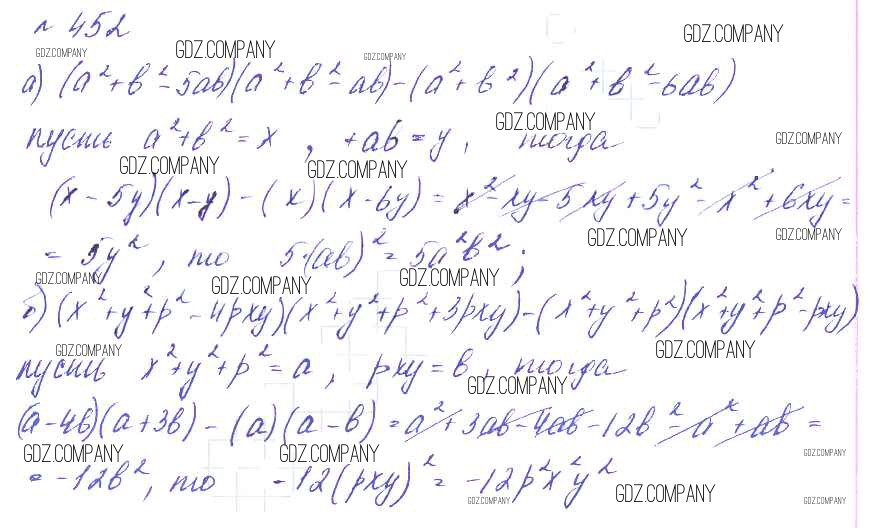 № 452
GDZ.COMPANY GDZ.COMPANY GDZ.COMPANY GDZ.COMPANY
а) (a²+b²-5ab)(a²+b²-ab)-(a²+b²)(a²+b²-6ab)
GDZ.COMPANY
пусть a²+b²=x, +ab=y, тогда
GDZ.COMPANY GDZ.COMPANY GDZ.COMPANY
(x-5y)(x-y)-(x)(x-6y)=x²-xy-5xy+5y²-x²+6xy=
GDZ.COMPANY GDZ.COMPANY
=5y², то 5·(ab)²=5a²b²;
GDZ.COMPANY GDZ.COMPANY GDZ.COMPANY
б) (x²+y²+p²-4pxy)(x²+y²+p²+3pxy)-(x²+y²+p²)(x²+y²+p²-pxy)
GDZ.COMPANY GDZ.COMPANY
пусть x²+y²+p²=a, pxy=b, тогда
GDZ.COMPANY
(a-4b)(a+3b)-(a)(a-b)=a²+3ab-4ab-12b²-a²+ab=
GDZ.COMPANY GDZ.COMPANY GDZ.COMPANY
=-12b², то -12(pxy)²=-12p²x²y²
GDZ.COMPANY GDZ.COMPANY GDZ.COMPANY